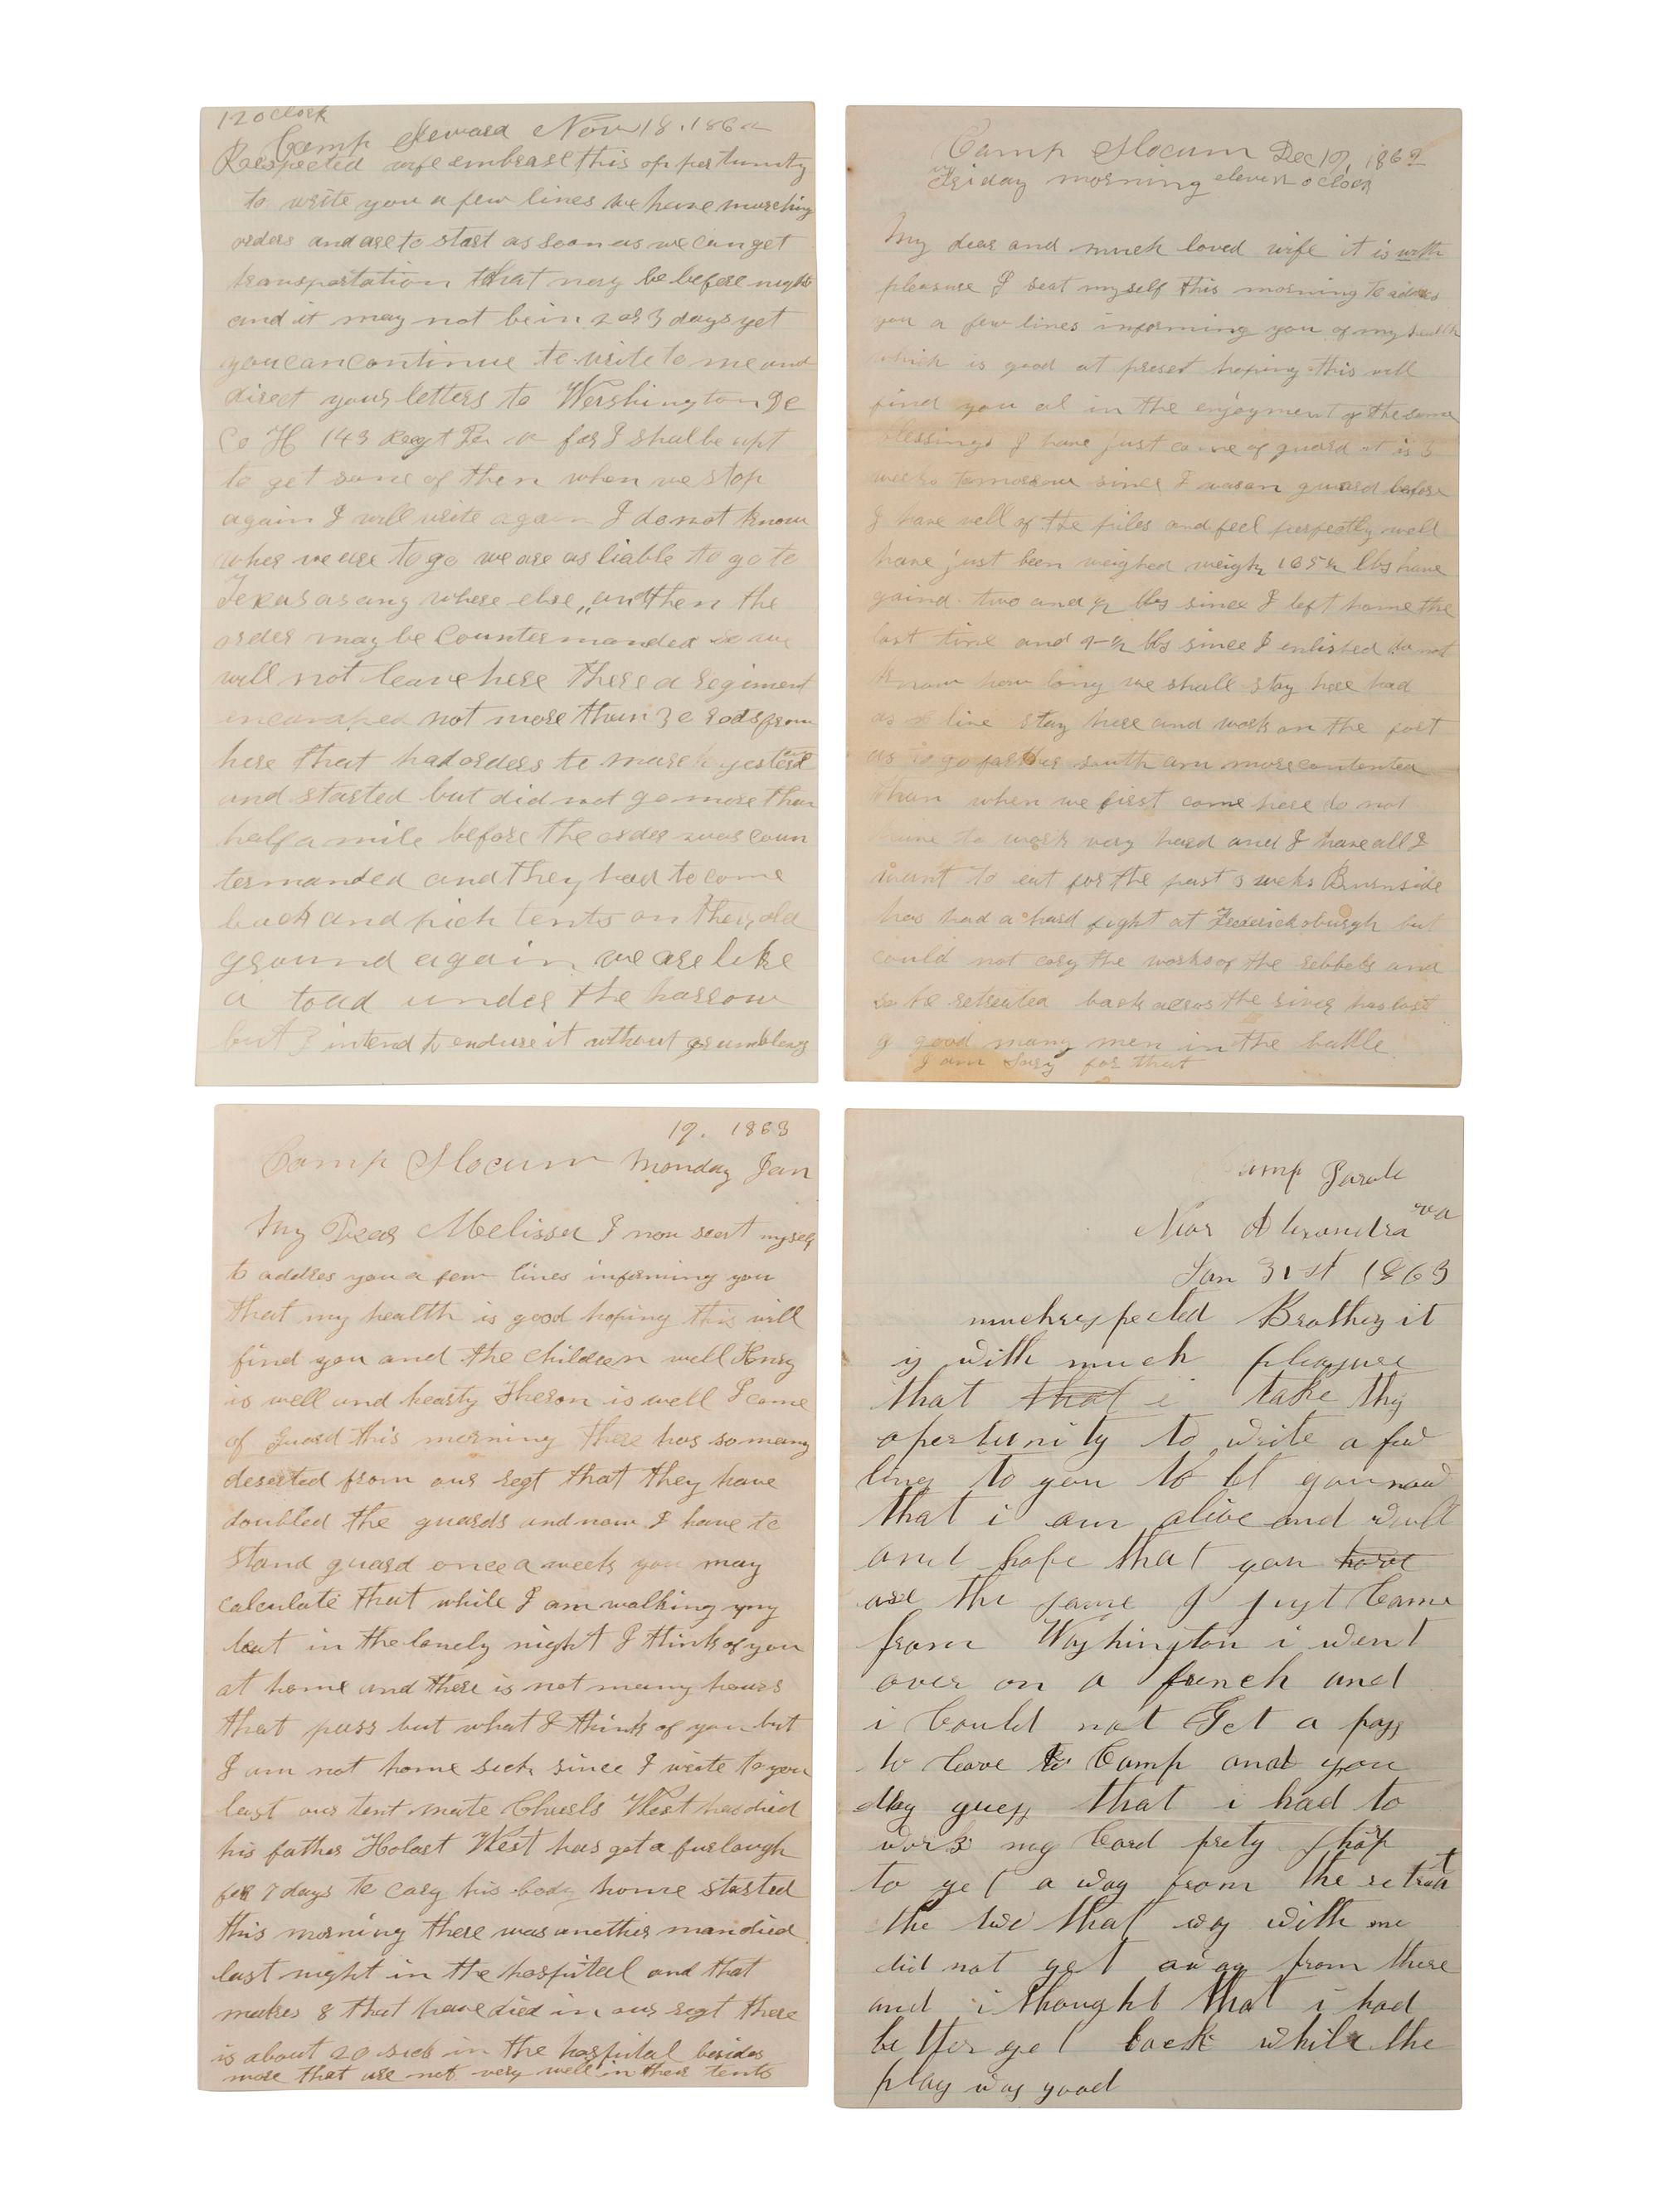 12 oclock
Camp Seward Nov 18. 1862
Respected wife embrase this oppertunity
to write you a few lines we have marching
orders and are to start as soon as we can get
transportation that may be before night
and it may not be in 2 or 3 days yet
you can continue to write to me and
direct your letters to Wershington DC
Co H 143 Regt Pa v for I shal be apt
to get some of them when we stop
again I will write again I do not know
wher we are to go we are as liable to go to
Texas as any where else,, and then the
order may be Countermanded so we
will not leave here there a regiment
encamped not more than 30 rods from
here that had orders to march yesterd
and started but did not go more than
half a mile before the order was coun
termanded and they had to come
back and pich tents on their old
ground again we are like
a toad under the harrow
but I intend to endure it without grumbleing
Camp Slocum Dec 19, 1862
Friday morning eleven oclock
My dear and much loved wife it is with
pleasure I seat myself this morning to adres
you a few lines informing you of my health
which is good at preset hoping this will
find you al in the enjoyment of the same
blessings I have just come of guard it is 3
weeks tomorrow since I was on guard before
I have well of the piles and feel perfectly well
have just been weighed weigh 165 ½ lbs have
gaind two and ½ lbs since I left home the
last time and 9-½ lbs since I enlisted do not
know how long we shall stay here had
as live stay here and work on the fort
as to go farther south am more contented
than when we first come here do not
have to work very hard and I have all I
want to eat for the past 3 weeks Burnside
has had a hard fight at Fredericksburgh but
could not cary the works of the rebbels and
so he retreated back across the river has lost
a good many men in the battle
I am Sory for that
19. 1863
Camp Slocum Monday Jan
My Dear Melissa I now seat myself
to addres you a few lines informing you
that my health is good hoping this will
find you and the children well Henry
is well and hearty Theron is well I came
of guard this morning there has so many
deserted from our regt that they have
doubled the guards and now I have to
stand guard once a week you may
calculate that while I am walking my
beat in the lonely night I think of you
at home and there is not many hours
that pass but what I think of you but
I am not home sick since I write to you
last our tent mate Charls West has died
his father Holast West has got a furlough
for 7 days to cary his body home started
this morning there was another man died
last night in the hospital and that
makes 8 that have died in our regt there
is about 20 sick in the hospital besides
more that are not very well in their tents
Camp Parole
Near Alexandra va
Jan 31st 1863
much respected Brother it
is with much pleasure
that that i take this
opertunity to write a few
lines to you to let you now
that i am alive and well
and hope that you have
are the same I just Came
from Washington i went
over on a french and
i Could not Get a pass
to leave to Camp and you
May guess that i had to
work my Card prety sharp
to get a way from the retreat
the two that was with me
did not get away from there
and i thought that i had
better get back while the
play was good